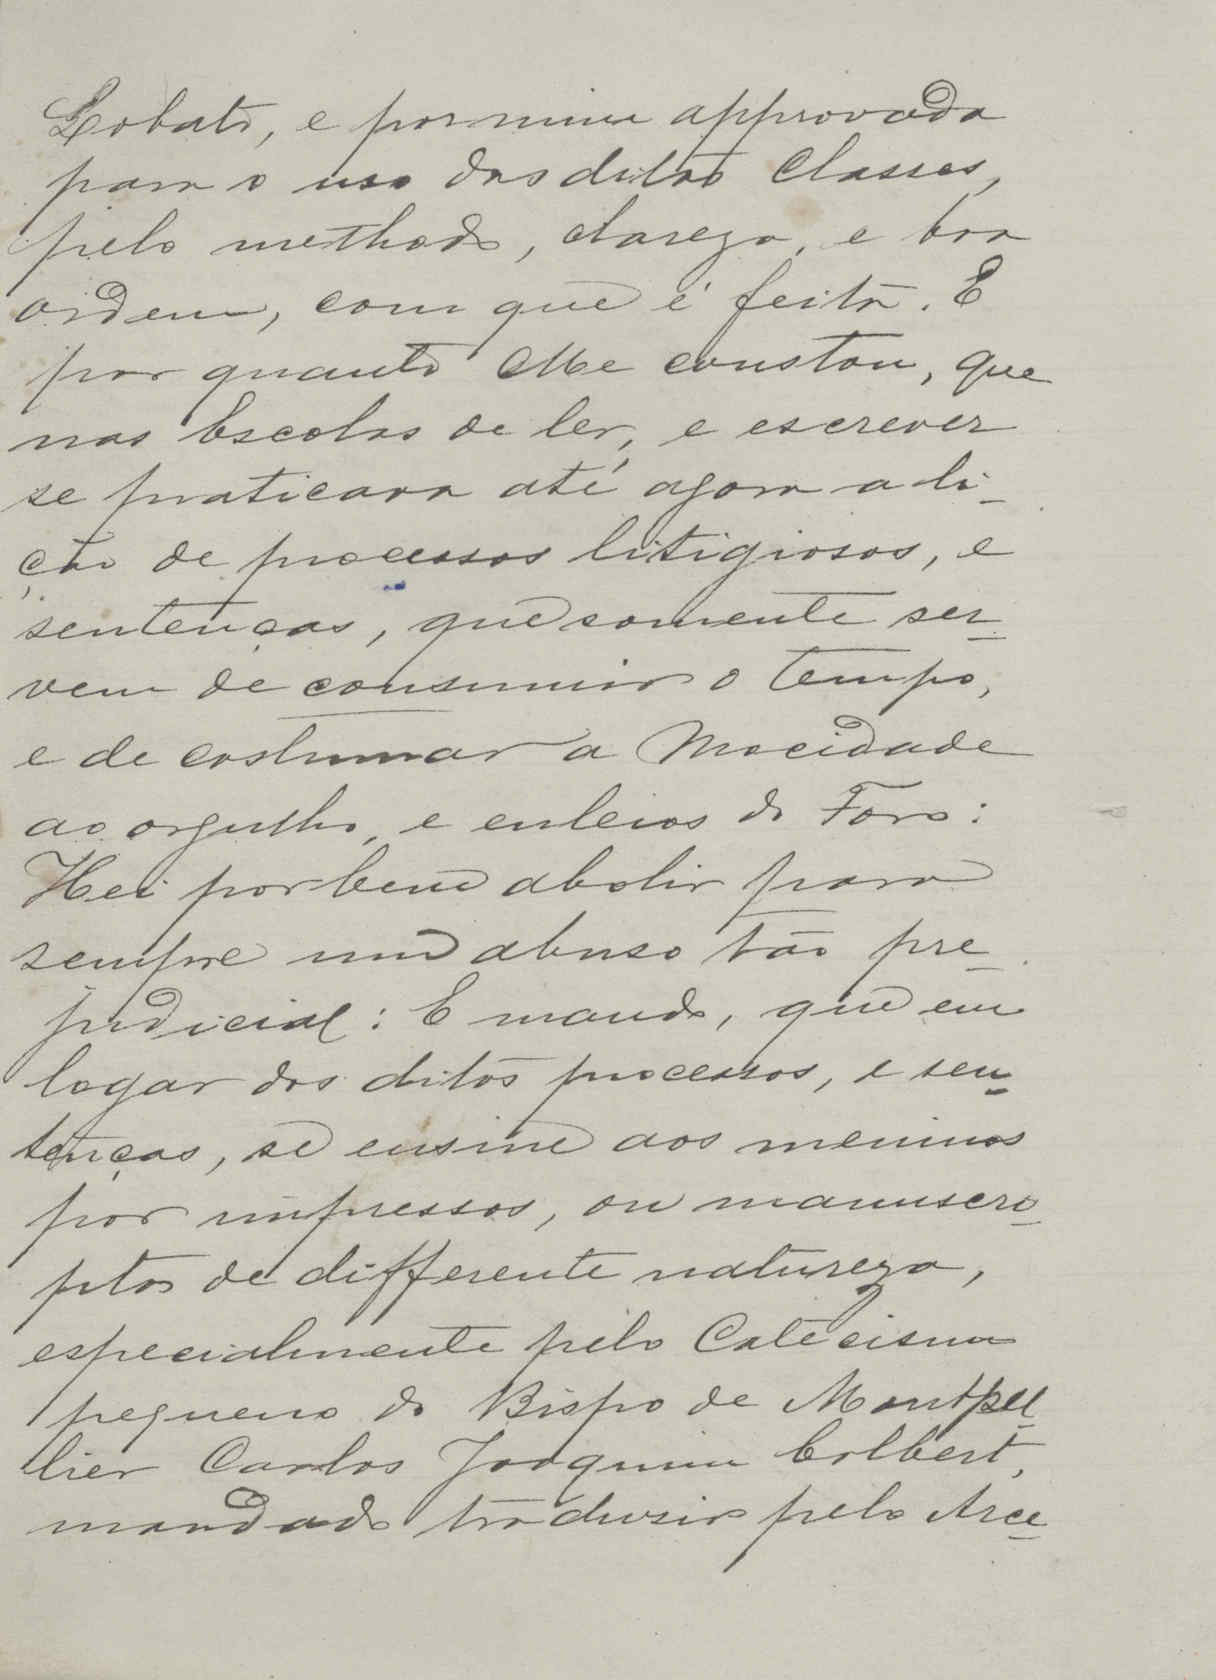 Lobato, e por mim approvada
para o uso das ditas Classes,
pelo methodo, clareza, e boa
ordem, com que é feita. E
por quanto Me constou, que
nas Escolas de ler, e escrever
se praticara até agora a li-
ção de processos litigiosos, e
sentenças, que somente ser-
vem de consumir o tempo,
e de costumar a Mocidade
ao orgulho, e enleios do Foro:
Hei por bem abolir para
sempre um abuso tão pre-
judicial: E mando, que em
logar dos ditos processos, e sen-
tenças, se ensine aos meninos
por impressos, ou manuscri-
ptos de differente natureza,
especialmente pelo Catecismo
pequeno do Bispo de Montpel-
lier Carlos Joaquim Colbert,
mandado traduzir pelo Arce-